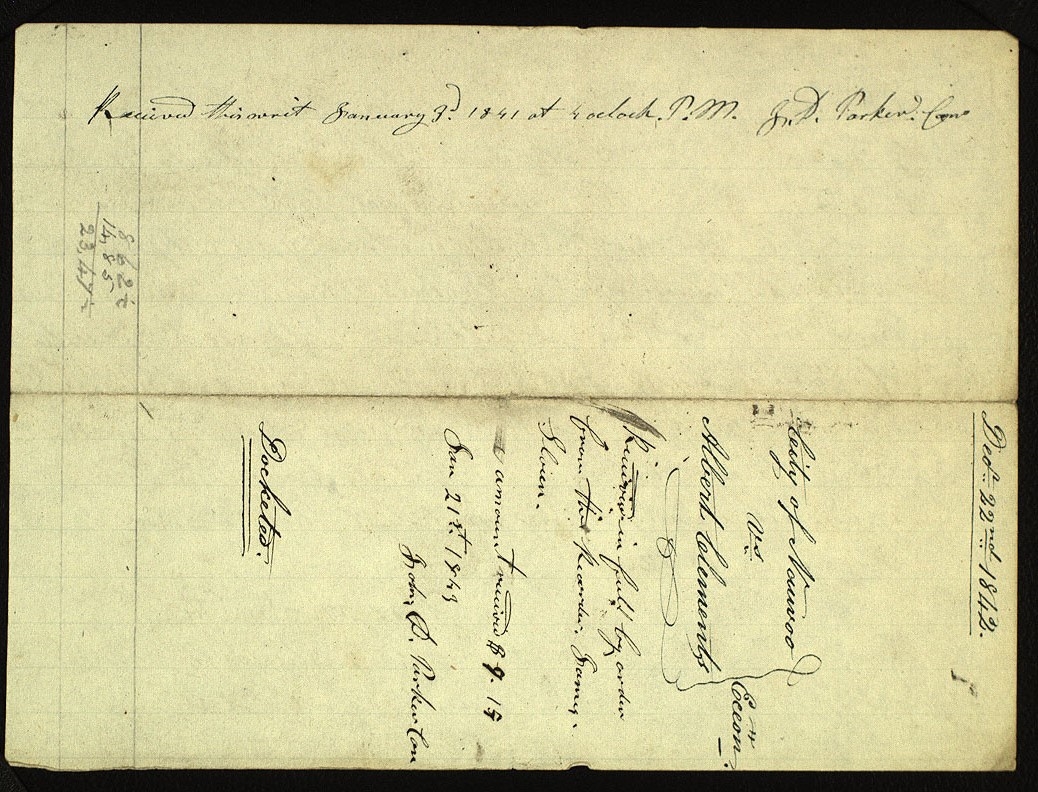 Received this writ January 3d. 1841 at 4 oclock. P.M. J. D. Parker. Con
8 62½
14,85
23,47½
Decr. 22nd 1842.
City of Nauvoo
vs.
Albert Clements
Exeon.
Received in full by order
from the Recorder. James.
Sloan.
amount received $9.15
Jan 21st 1843
John, D. Parker Con
Docketed.